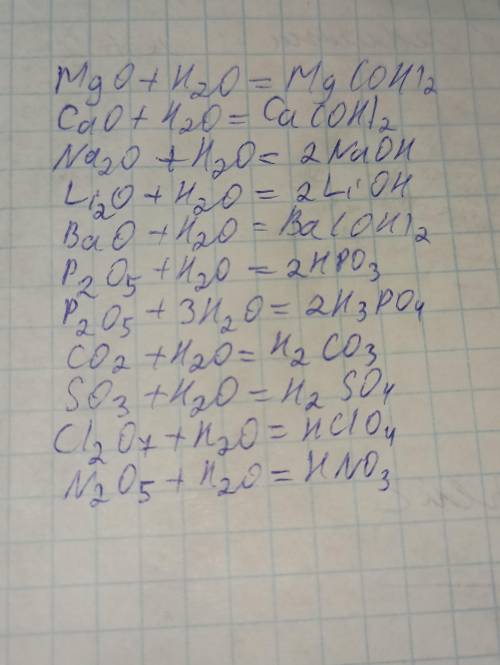 MgO + H2O = Mg(OH)2
CaO + H2O = Ca(OH)2
Na2O + H2O = 2NaOH
Li2O + H2O = 2LiOH
BaO + H2O = Ba(OH)2
P2O5 + H2O = 2HPO3
P2O5 + 3H2O = 2H3PO4
CO2 + H2O = H2CO3
SO3 + H2O = H2SO4
Cl2O7 + H2O = HClO4
N2O5 + H2O = HNO3